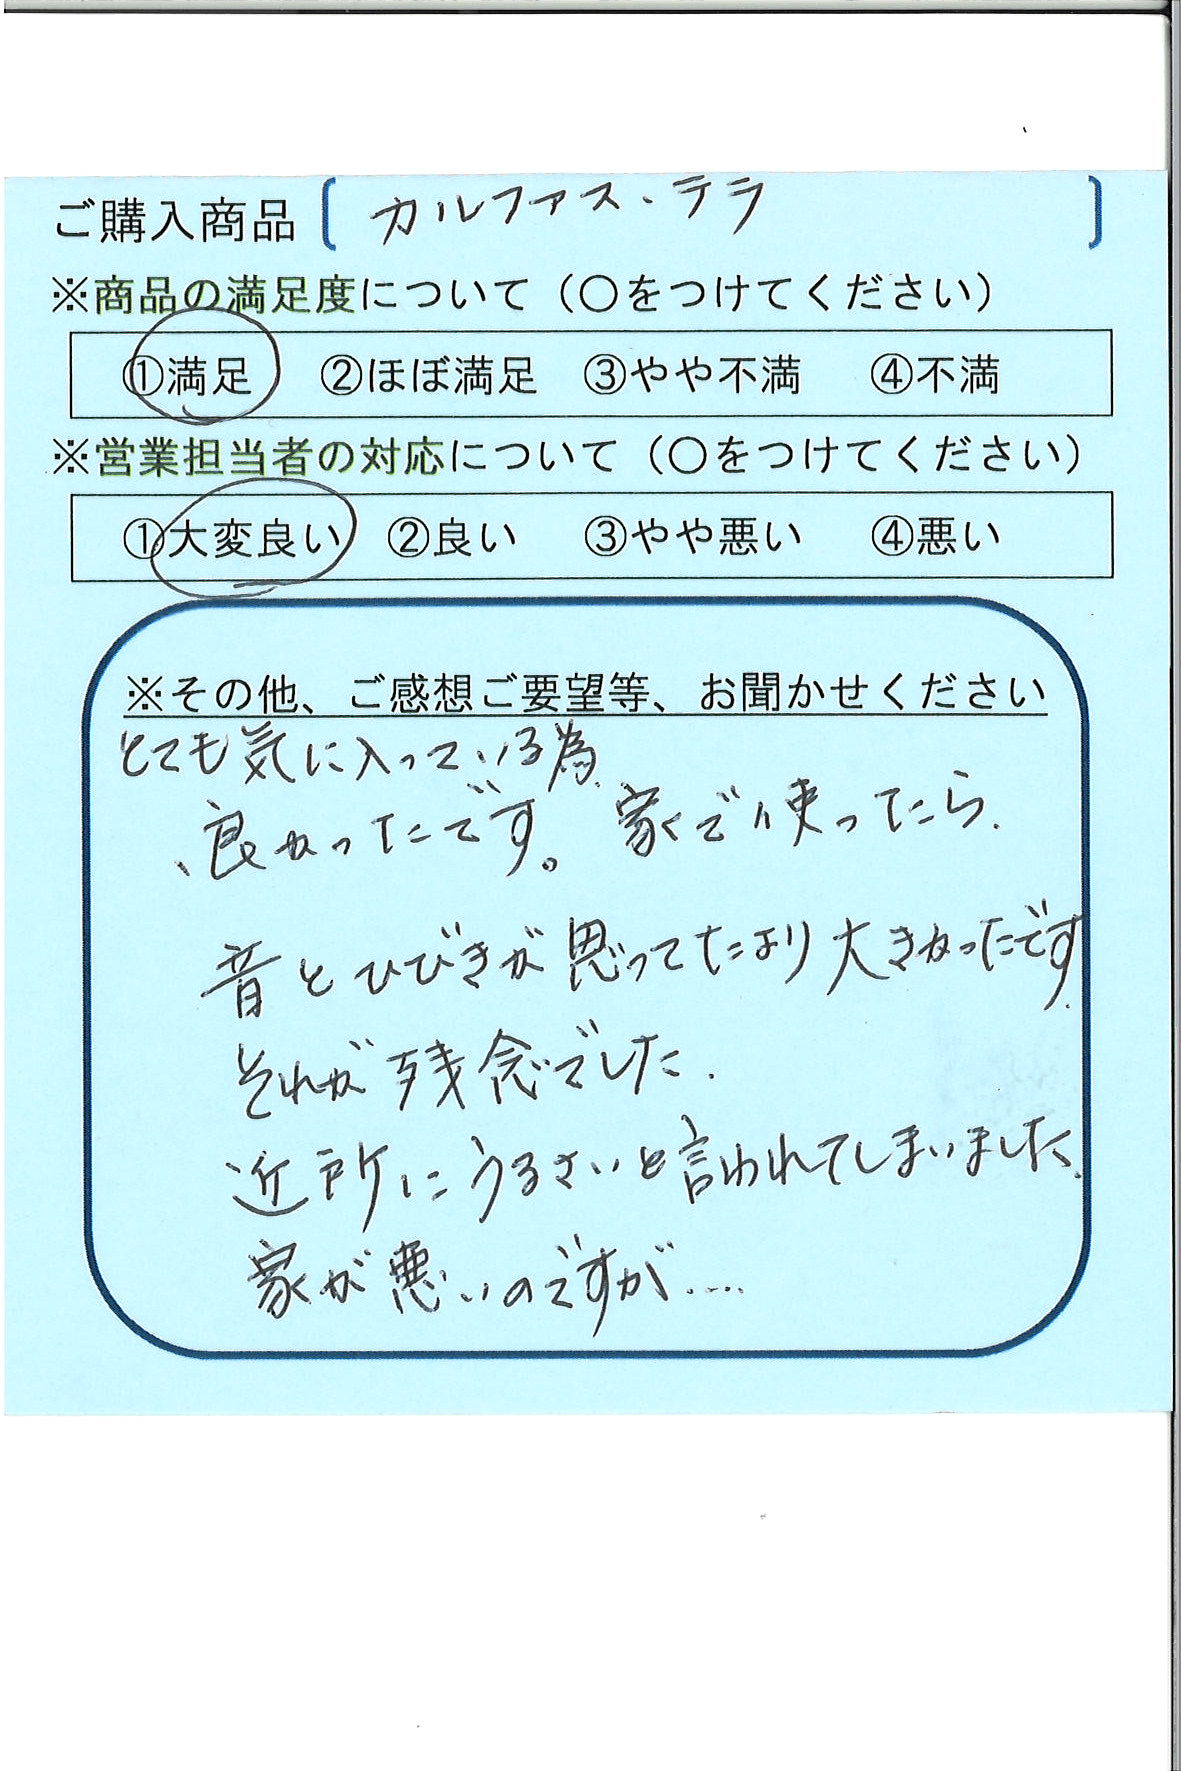 ご購入商品［カルファス・テラ］
※商品の満足度について（○をつけてください）
①満足　②ほぼ満足　③やや不満　④不満
※営業担当者の対応について（○をつけてください）
①大変良い　②良い　③やや悪い　④悪い
※その他、ご感想ご要望等、お聞かせください
とても気に入っている為
、良かったです。家で使ったら、
音とひびきが思ってたより大きかったです
それが残念でした.
近所にうるさいと言われてしまいました.
家が悪いのですが....